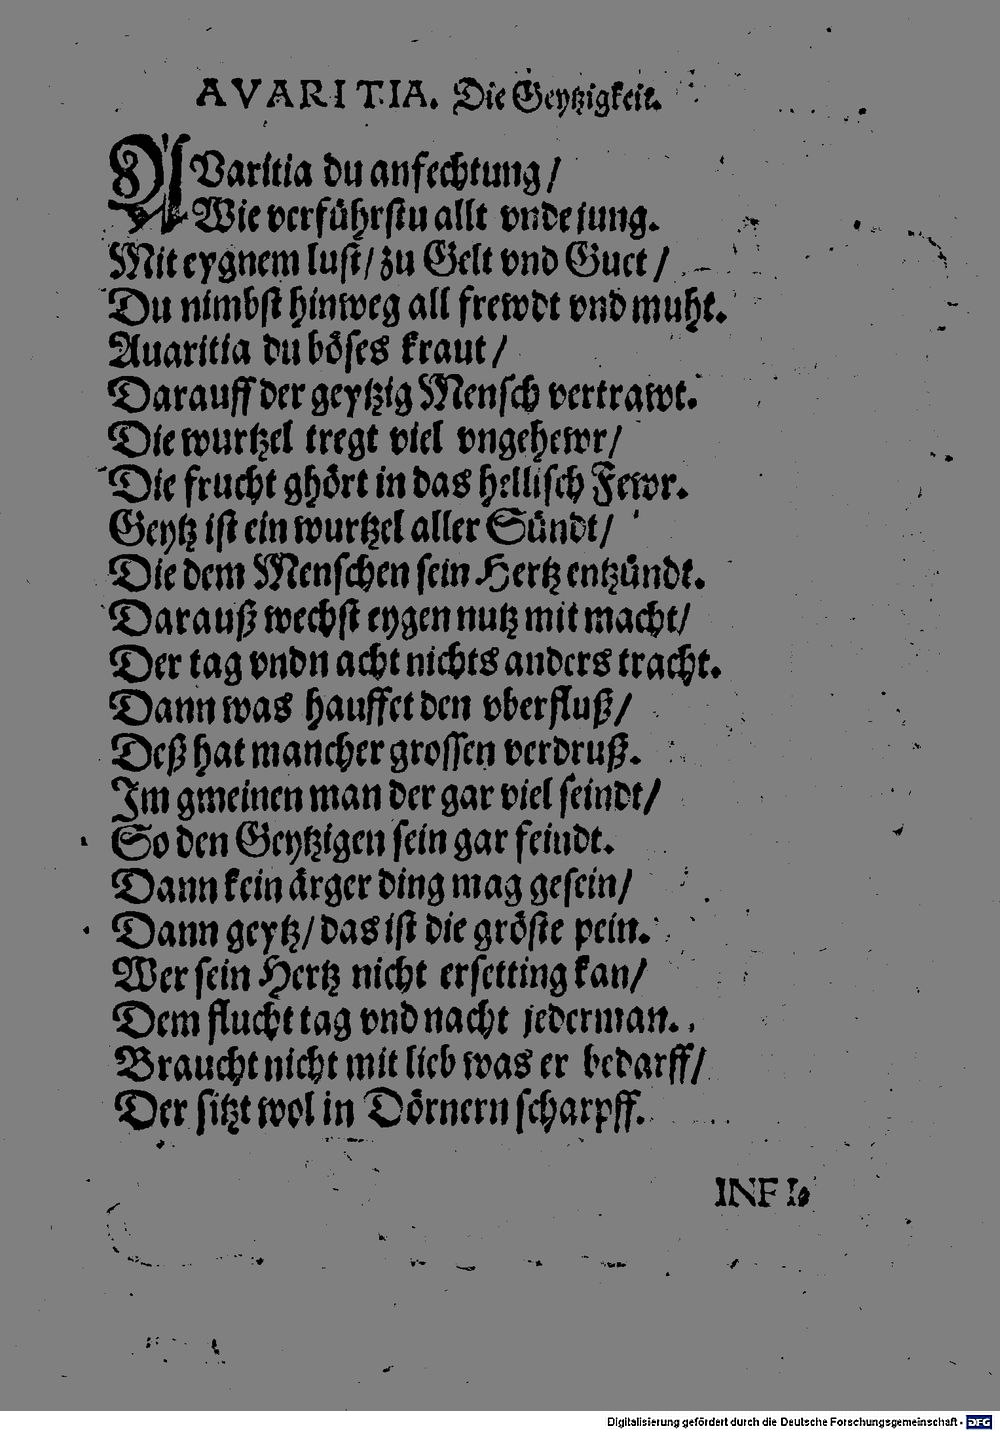 AVARITIA. Die Geytzigkeit.
AVaritia du anfechtung/
Wie verführstu allt vnde jung.
Mit eygnem lust/ zu Gelt vnd Guet/
Du nimbst hinweg all frewdt vnd muht.
Auaritia du böses kraut/
Darauff der geytzig Mensch vertrawt.
Die wurtzel tregt viel vngehewr/
Die frucht ghört in das hellisch Fewr.
Geytz ist ein wurtzel aller Sündt/
Die dem Menschen sein Hertz entzündt.
Darauß wechst eygen nutz mit macht/
Der tag vndn acht nichts anders tracht.
Dann was hauffet den vberfluß/
Deß hat mancher grossen verdruß.
Im gmeinen man der gar viel seindt/
So den Geytzigen sein gar feindt.
Dann kein ärger ding mag gesein/
Dann geytz/ das ist die gröste pein.
Wer sein Hertz nicht ersetting kan/
Dem flucht tag vnd nacht jederman.
Braucht nicht mit lieb was er bedarff/
Der sitzt wol in Dörnern scharpff.
INFI.
Digitalisierung gefördert durch die Deutsche Forschungsgemeinschaft - DFG